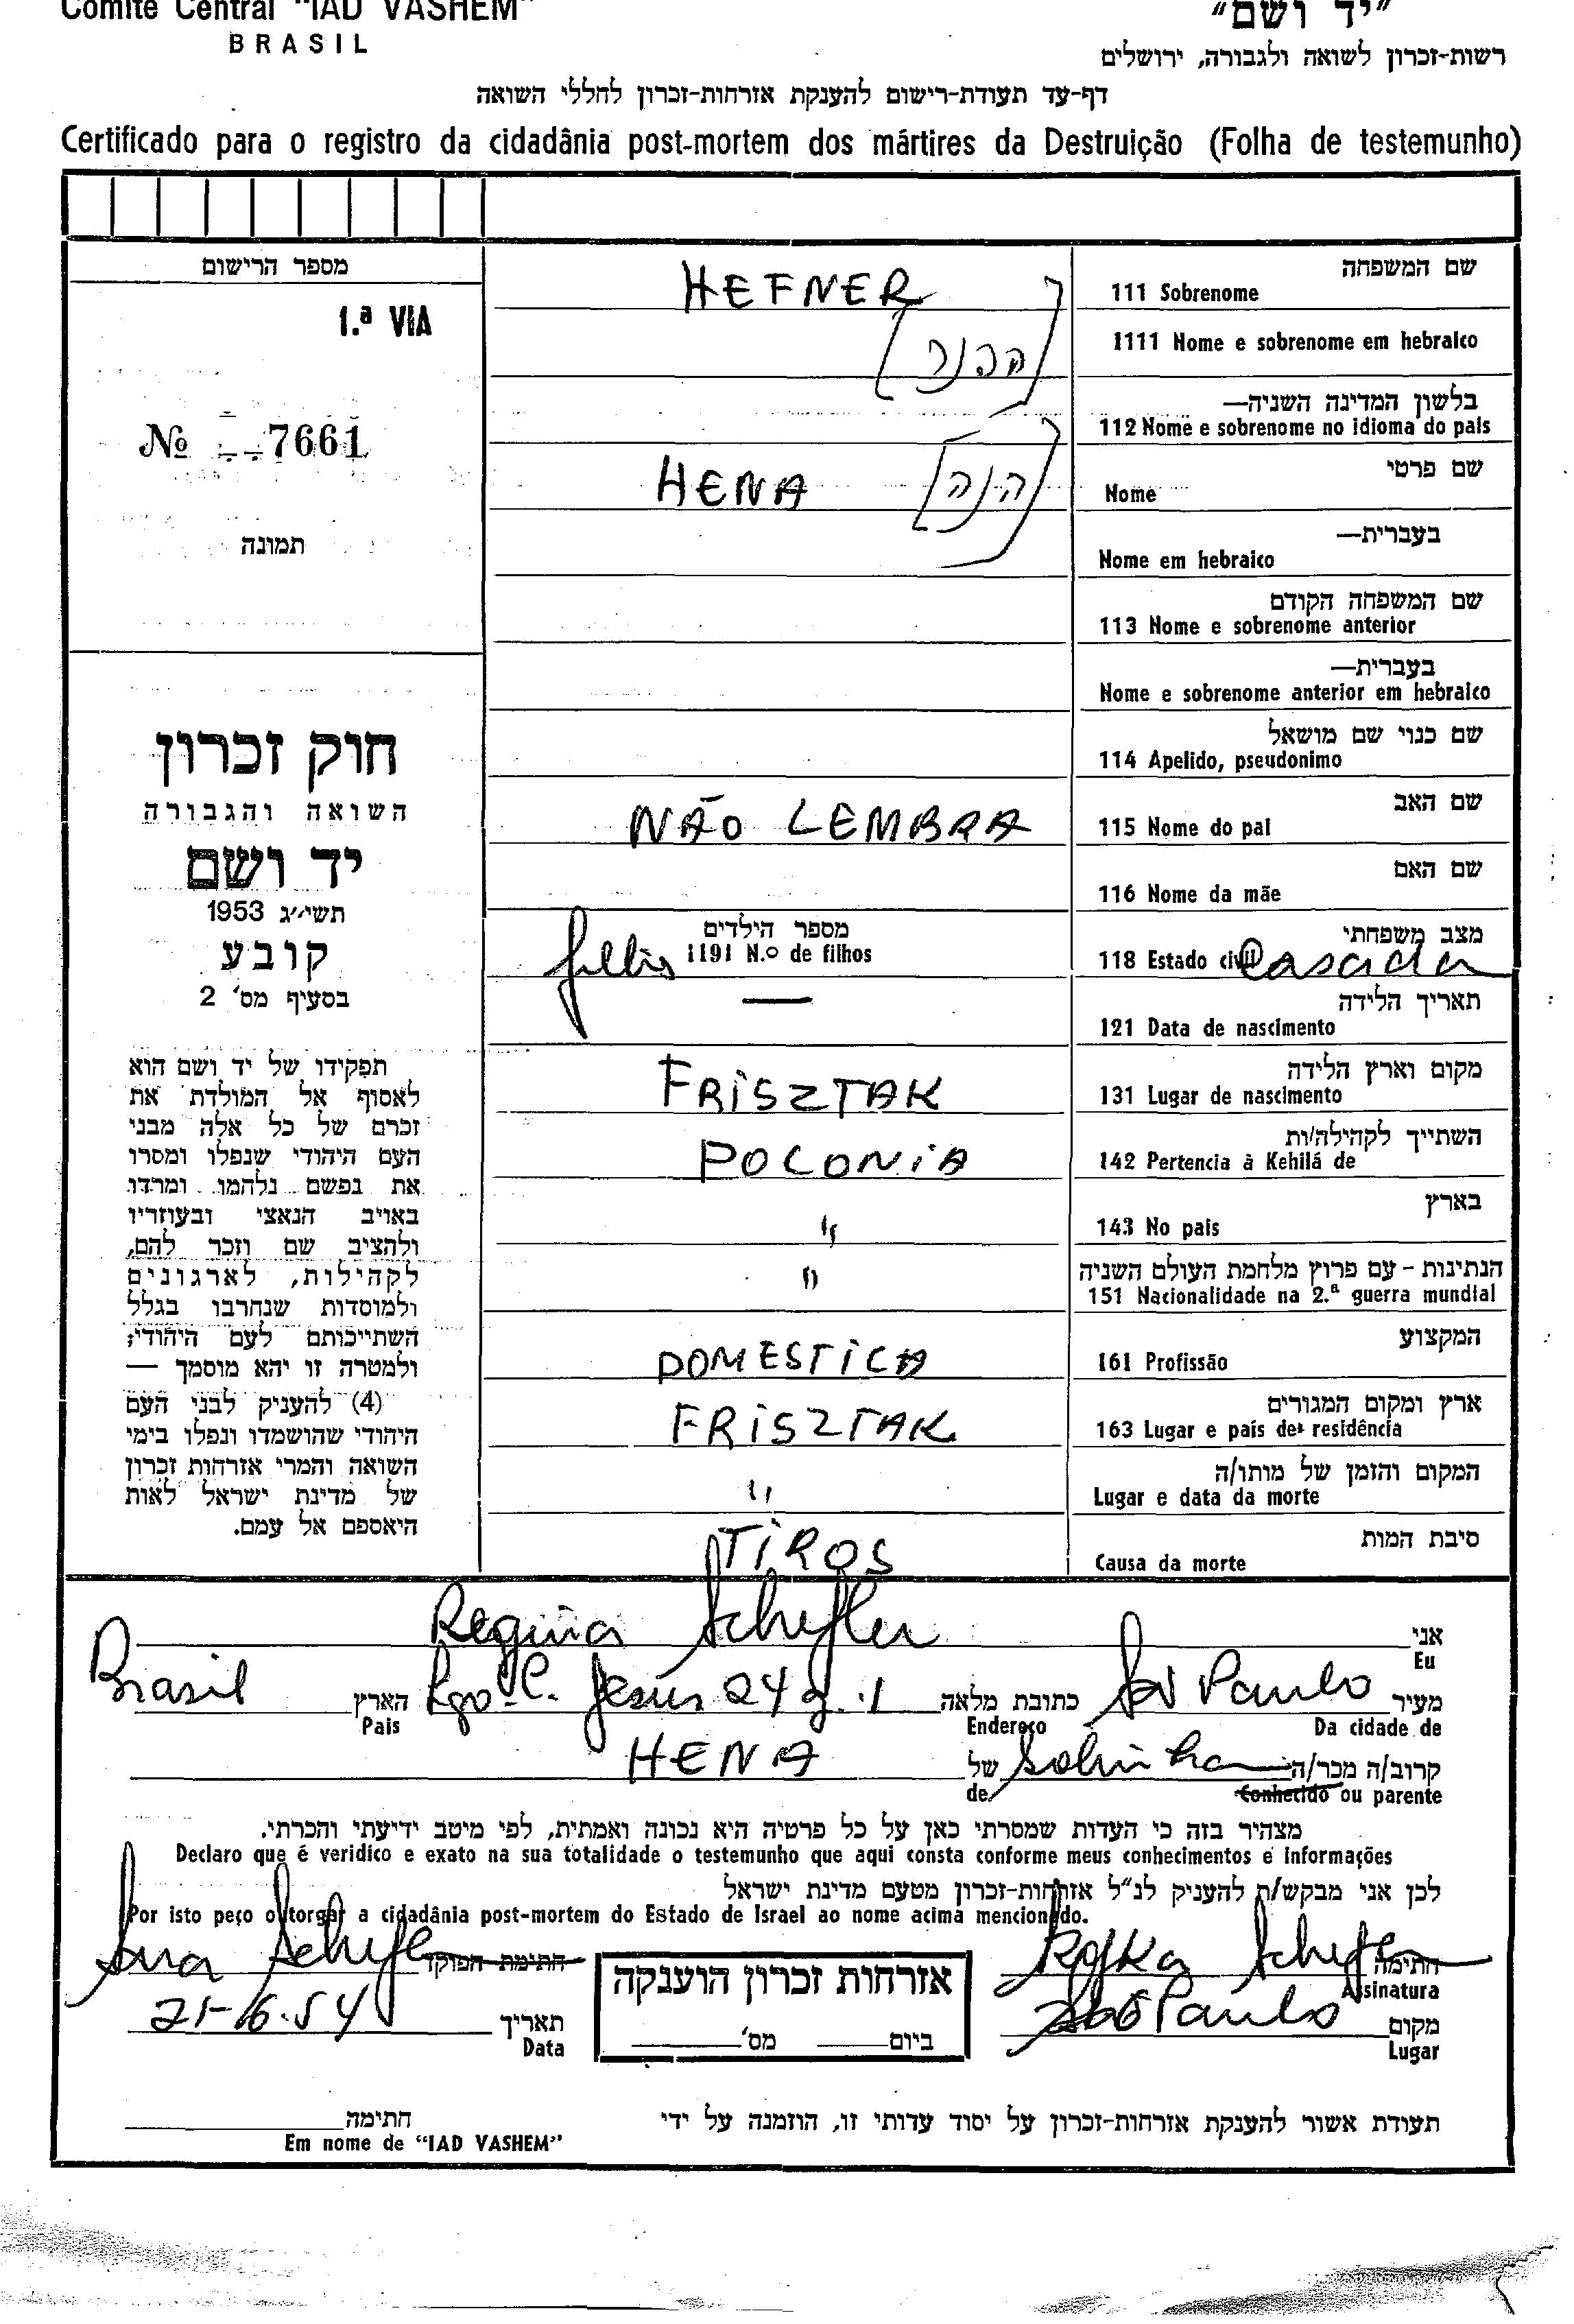 Comite Central "IAD VASHEM"
BRASIL
"יד ושם"
רשות-זכרון לשואה ולגבורה, ירושלים
דף-עד תעודת-רישום להענקת אזרחות-זכרון לחללי השואה
Certificado para o registro da cidadânia post-mortem dos mártires da Destruição (Folha de testemunho)
מספר הרישום
1.ª VIA
№ 7661
תמונה
חוק זכרון
השואה והגבורה
יד ושם
תשי״ג 1953
קובע
בסעיף מס' 2
תפקידו של יד ושם הוא
לאסוף אל המולדת את
זכרם של כל אלה מבני
העם היהודי שנפלו ומסרו
את נפשם נלחמו ומרדו
באויב הנאצי ובעוזריו
ולהציב שם וזכר להם,
לקהילות, לארגונים
ולמוסדות שנחרבו בגלל
השתייכותם לעם היהודי;
ולמטרה זו יהא מוסמך —
(4) להעניק לבני העם
היהודי שהושמדו ונפלו בימי
השואה והמרי אזרחות זכרון
של מדינת ישראל לאות
היאספם אל עמם.
שם המשפחה
111 Sobrenome HEFNER
1111 Nome e sobrenome em hebraico [הפנר]
בלשון המדינה השניה—
112 Nome e sobrenome no idioma do pais
שם פרטי
Nome HENA [הנה]
בעברית—
Nome em hebraico
שם המשפחה הקודם
113 Nome e sobrenome anterior
בעברית—
Nome e sobrenome anterior em hebraico
שם כנוי שם מושאל
114 Apelido, pseudonimo
שם האב
115 Nome do pai NÃO LEMBRA
שם האם
116 Nome da mãe
מצב משפחתי
118 Estado civil Casada
מספר הילדים
1191 N.º de filhos
תאריך הלידה
121 Data de nascimento —
מקום וארץ הלידה
131 Lugar de nascimento FRISZTAK
השתייך לקהילה/ות
142 Pertencia à Kehilá de POLONIA
בארץ
143 No pais "
הנתינות - עם פרוץ מלחמת העולם השניה
151 Nacionalidade na 2.ª guerra mundial "
המקצוע
161 Profissão DOMESTICA
ארץ ומקום המגורים
163 Lugar e pais de residência FRISZTAK
המקום והזמן של מותו/ה
Lugar e data da morte "
סיבת המות
Causa da morte TIROS
אני
Eu Regina Schefler
מעיר São Paulo כתובת מלאה Jesus 24 הארץ Brasil
Da cidade de Endereço Pais
קרוב/ה מכר/ה sobrinha של HENA
Conhecido ou parente de
מצהיר בזה כי העדות שמסרתי כאן על כל פרטיה היא נכונה ואמתית, לפי מיטב ידיעתי והכרתי.
Declaro que é veridico e exato na sua totalidade o testemunho que aqui consta conforme meus conhecimentos e informações
לכן אני מבקש/ת להעניק לנ"ל אזרחות-זכרון מטעם מדינת ישראל
Por isto peço outorgar a cidadânia post-mortem do Estado de Israel ao nome acima mencionado.
חתימה Schefler
Assinatura
חתימת הפוקד Schefler
אזרחות זכרון הוענקה
ביום מס'
מקום São Paulo
Lugar
תאריך
Data
תעודת אשור להענקת אזרחות-זכרון על יסוד עדותי זו, הוזמנה על ידי
חתימה
Em nome de "IAD VASHEM"